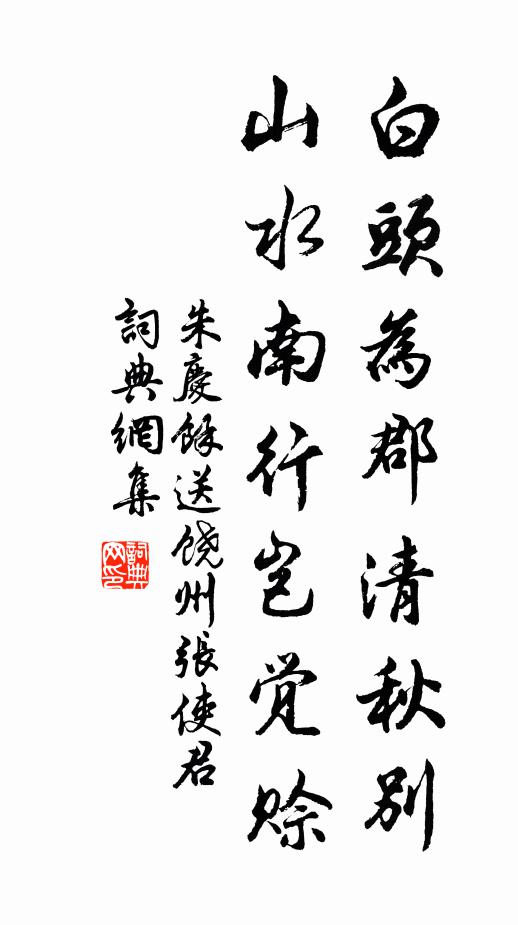 白頭為郡清秋別
山水南行岂觉赊
朱慶餘送饶州張使君
詞典網集
詞典网印